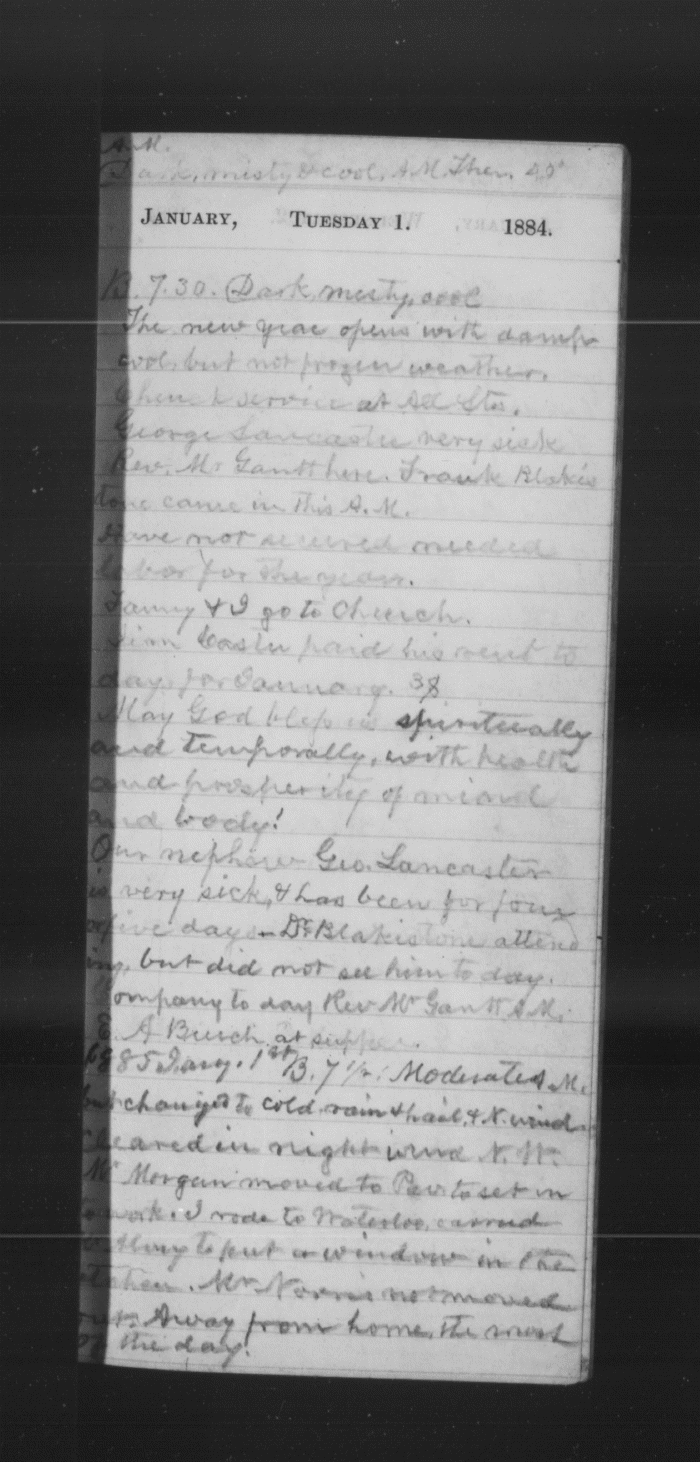 A.M.
Dark, misty & cool, A.M. Ther. 40°
January, Tuesday 1. 1884.
B. 7.30. Dark, misty, cool
The new year opens with damp
cool, but not frozen weather.
Church service at All Sts.
George Lancaster very sick
Rev. Mr Gantt here. Frank Blakis
tone came in this A.M.
Have not secured needed
labor for the year.
Fanny & I go to Church.
paid his rent to
day, for January. 38
May God bless us spiritually
and temporally, with health
and prosperity of mind
and body!
Our nephew Geo. Lancaster
is very sick, & has been for four
or five days - Dr Blakistone attend
ing, but did not see him to day.
Company to day Rev Mr Gantt A.M.
E. A Burch at supper.
1885 Jany. 1st B. 7 1/2. Moderate A.M.
but changed to cold rain & hail, & N. wind
Cleared in night wind N. W.
Mr Morgan moved to to set in
to work. I rode to Waterloo, carried
to put a window in the
kitchen. Mr Norris not moved
out. Away from home, the most
of the day.